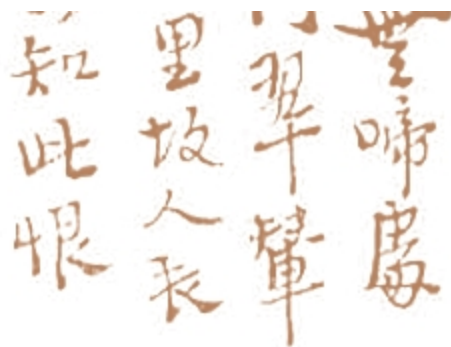 無啼處
翠輦
里故人长
知此恨